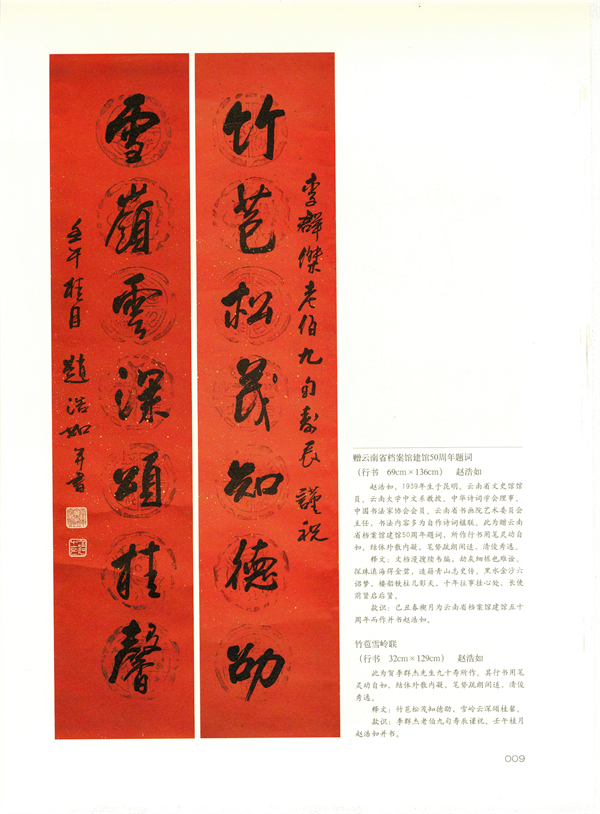 李群傑老伯九旬壽辰 謹祝
竹苞松茂知德劭
雪嶺雲深頌桂馨
壬午桂月 趙浩如并書
赠云南省档案馆建馆50周年题词
（行书 69cm×136cm） 赵浩如
赵浩如，1939年生于昆明。云南省文史馆馆
员、云南大学中文系教授、中华诗词学会理事、
中国书法家协会会员、云南省书画院艺术委员会
主任。书法内容多为自作诗词楹联。此为赠云南
省档案馆建馆50周年题词，所作行书用笔灵动自
如，结体外散内凝，笔势疏朗闲逸，清俊秀逸。
释文：文档漫搜续书编，劫灰细拣也难论。
探珠滇海得金碧，遗籍青山志史传。黑水金沙六
诏梦，楼船铁柱几影天。千年往事挂心处，长使
前贤启后贤。
款识：己丑春榭月为云南省档案馆建馆五十
周年而作并书赵浩如。
竹苞雪岭联
（行书 32cm×129cm） 赵浩如
此为贺李群杰先生九十寿所作。其行书用笔
灵动自如，结体外散内凝，笔势疏朗闲逸，清俊
秀逸。
释文：竹苞松茂知德劭，雪岭云深颂桂馨。
款识：李群杰老伯九旬寿辰谨祝，壬午桂月
赵浩如并书。
009